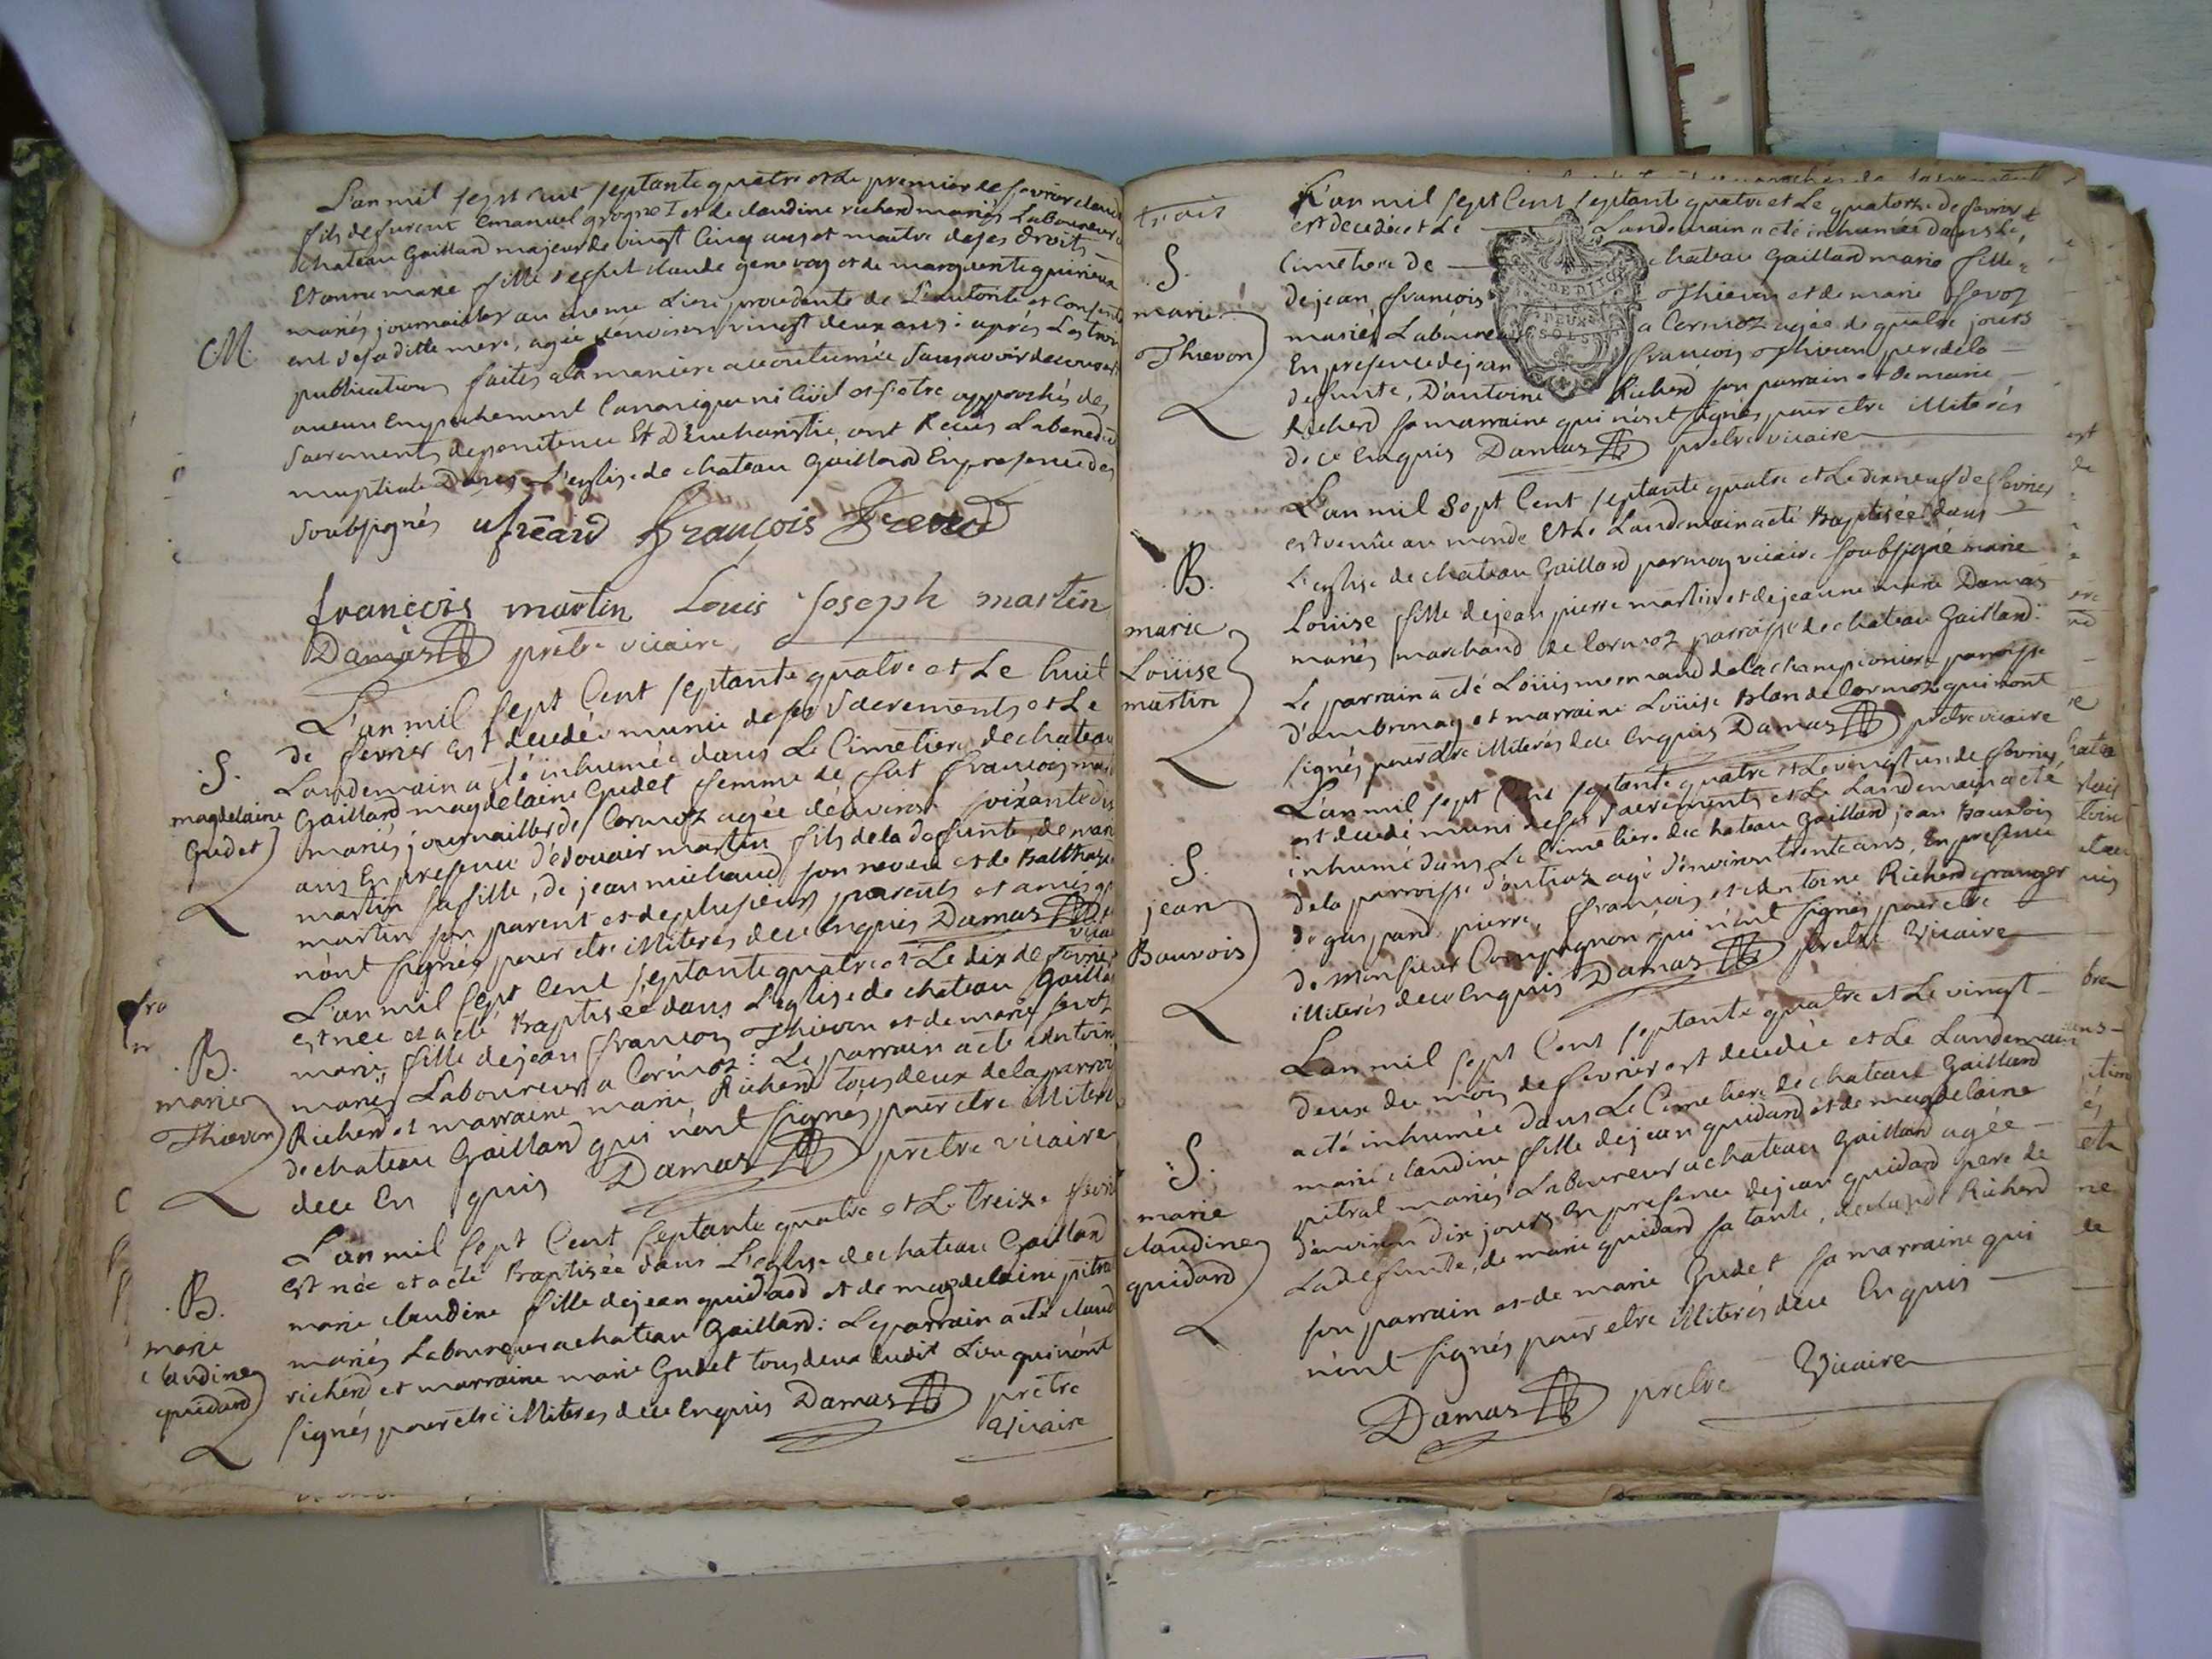 L'an mil sept cent septante quatre et Le premier de fevrier claude
fils de furent Emanuel grognet et de claudine richerd mariés Laboureurs a
chateau Gaillard majeur de vingt Cinq ans et maitre de ses droits
Et anne marie fille de fut claude genevay et de marguerite
mariés journailler au meme Lieu procedante de L'autorité et Consente
ent de sa ditte mere, agée d'environ vingt deux ans : aprés Les trois
C.M.
publications faites a la maniere accoutumée sans avoir decouvert
aucun Empechement Canonique ni Civil et s'etre approchés des
Sacrements de penitence Et D'Eucharistie, ont Reçus La benedi
nuptiale Dans L'eglise de chateau Gaillard En presence des
soubsignés français
françois martin Louis Joseph martin
Damas prêtre vicaire
L'an mil sept Cent septante quatre et Le huit
de fevrier Est decedée munie de ses Sacrements et Le
Landemain a été inhumée dans Le Cimetiere de chateau
S.
magdelaine
Gudet
Gaillard magdelaine Gudet femme de fut françois mar
mariés journailler de Cormoz agée d'environ soixante dix
ans En presence d'edouair martin fils de la defunte, de marie
martin sa fille, de jean michaud son neveu et de Balthazar
martin son parent et de plusieurs parents et amis qui
n'ont signés pour etre illiterés de ce Enquis Damas vicai
L'an mil sept Cent septante quatre et Le dix de fevrier
est née et a été Baptisée dans L'eglise de chateau Gaillar
B.
marie
Thievon
marie fille de jean françois Thievon et de marie fevoz
mariés Laboureurs a Cormoz : Le parrain a été Antoine
Richerd et marraine marie Richerd tous deux de la parroi
de chateau Gaillard qui n'ont signés pour etre illiteré
de ce En quis Damas pretre vicaire
L'an mil sept Cent septante quatre et Le treize fevri
est née et a été Baptisée dans L'eglise de chateau Gaillard
B.
marie
claudine
guidard
marie claudine fille de jean guidard et de magdelaine pitra
mariés Laboureurs a chateau Gaillard : Le parrain a été claud
richerd et marraine marie Gudet tous deux dudit Lieu qui n'ont
signés pour etre illiterés de ce Enquis Damas prêtre
Vicaire
trois
L'an mil sept Cent septante quatre et Le quatorze de fevrier
est decedée et Le Landemain a été inhumée dans Le
S.
marie
Thievon
Cimetiere de chateau Gaillard marie fille
de jean françois Thievon et de marie fevoz
mariés Laboureurs a Cormoz agée de quatre jours
En presence de jean françois Thievon pere de la
defunte, D'antoine Richerd son parrain et de marie
Richerd sa marraine qui n'ont signés pour etre illiterés
de ce Enquis Damas prêtre vicaire
DEUX
SOLS
L'an mil Sept Cent septante quatre et Le dixneuf de fevrier
est venüe au monde Et Le Landemain a été Baptisée dans
B.
marie
Loüise
martin
L'eglise de chateau Gaillard par moy vicaire soubsigné marie
Loüise fille de jean pierre martin et de jeanne marie Damas
mariés marchand de Cormoz parroisse de chateau Gaillard :
Le parrain a été Loüis mermand de La championiere parroisse
d'ambronay et marraine Loüise Blan de Cormoz qui n'ont
signés pour etre illiterés de ce Enquis Damas prêtre vicaire
L'an mil sept Cent septante quatre et Le vingt un de fevrier
est decedé muni de ses sacrements et Le Landemain a été
S.
jean
Bauvois
inhumé dans Le Cimetiere de chateau Gaillard jean Bauvois
de la parroisse d'outriaz agé d'environ trente ans, En presence
de gaspard pierre, françois et d'Antoine Richerd granger
de Monsieur Compagnon qui n'ont signés pour etre
illiterés de ce Enquis Damas pretre Vicaire
L'an mil sept Cent septante quatre et Le vingt
deux du mois de fevrier est decedée et Le Landemain
S.
marie
claudine
guidard
a été inhumée dans Le Cimetiere de chateau Gaillard
marie claudine fille de jean guidard et de magdelaine
pitral mariés Laboureur a chateau Gaillard agée
d'environ dix jours En presence de jean guidard pere de
La defunte, de marie guidard sa tante, de claude Richerd
son parrain et de marie Gudet sa marraine qui
n'ont signés pour etre illiterés de ce Enquis
Damas pretre Vicaire